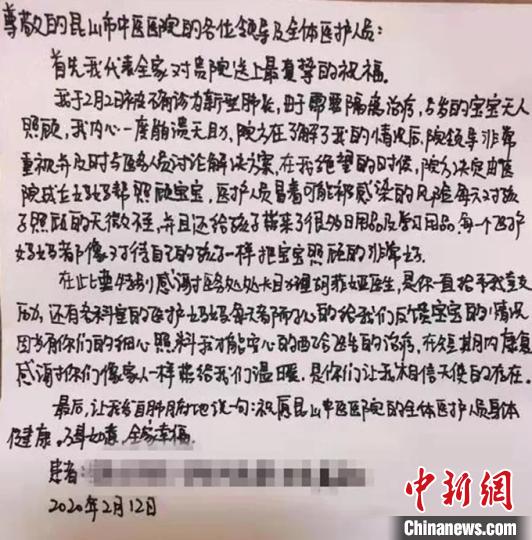 尊敬的昆山市中医医院的各位领导及全体医护人员：
首先我代表全家对贵院送上最真挚的祝福。
我于2月2日被确诊为新型肺炎，由于需要隔离治疗，5岁的宝宝无人
照顾，我内心一度崩溃无助，院方在了解了我的情况后，院领导非常
重视并及时与医务人员讨论解决方案，在我绝望的时候，院方决定由医
院成立妈妈帮照顾宝宝，医护人员冒着可能被感染的风险每天对孩
子照顾的无微不至，并且还给孩子带来了很多日用品及学习用品，每一个医护
妈妈都像对待自己的孩子一样把宝宝照顾的非常好。
在此要特别感谢医务处处长助理胡菲娅医生，是你一直给予我支
还有各科室的医护妈妈每天都耐心的给我们反馈宝宝的情况
因为有你们的细心照料我才能安心的配合医生的治疗，在短期内康复
感谢你们像家人一样带给我们温暖，是你们让我相信天使的存在。
最后，让我发自肺腑地说一句：祝愿昆山中医医院的全体医护人员身体
健康，万事如意，全家幸福。
患者：
2020年2月12日
中新网
Chinanews.com